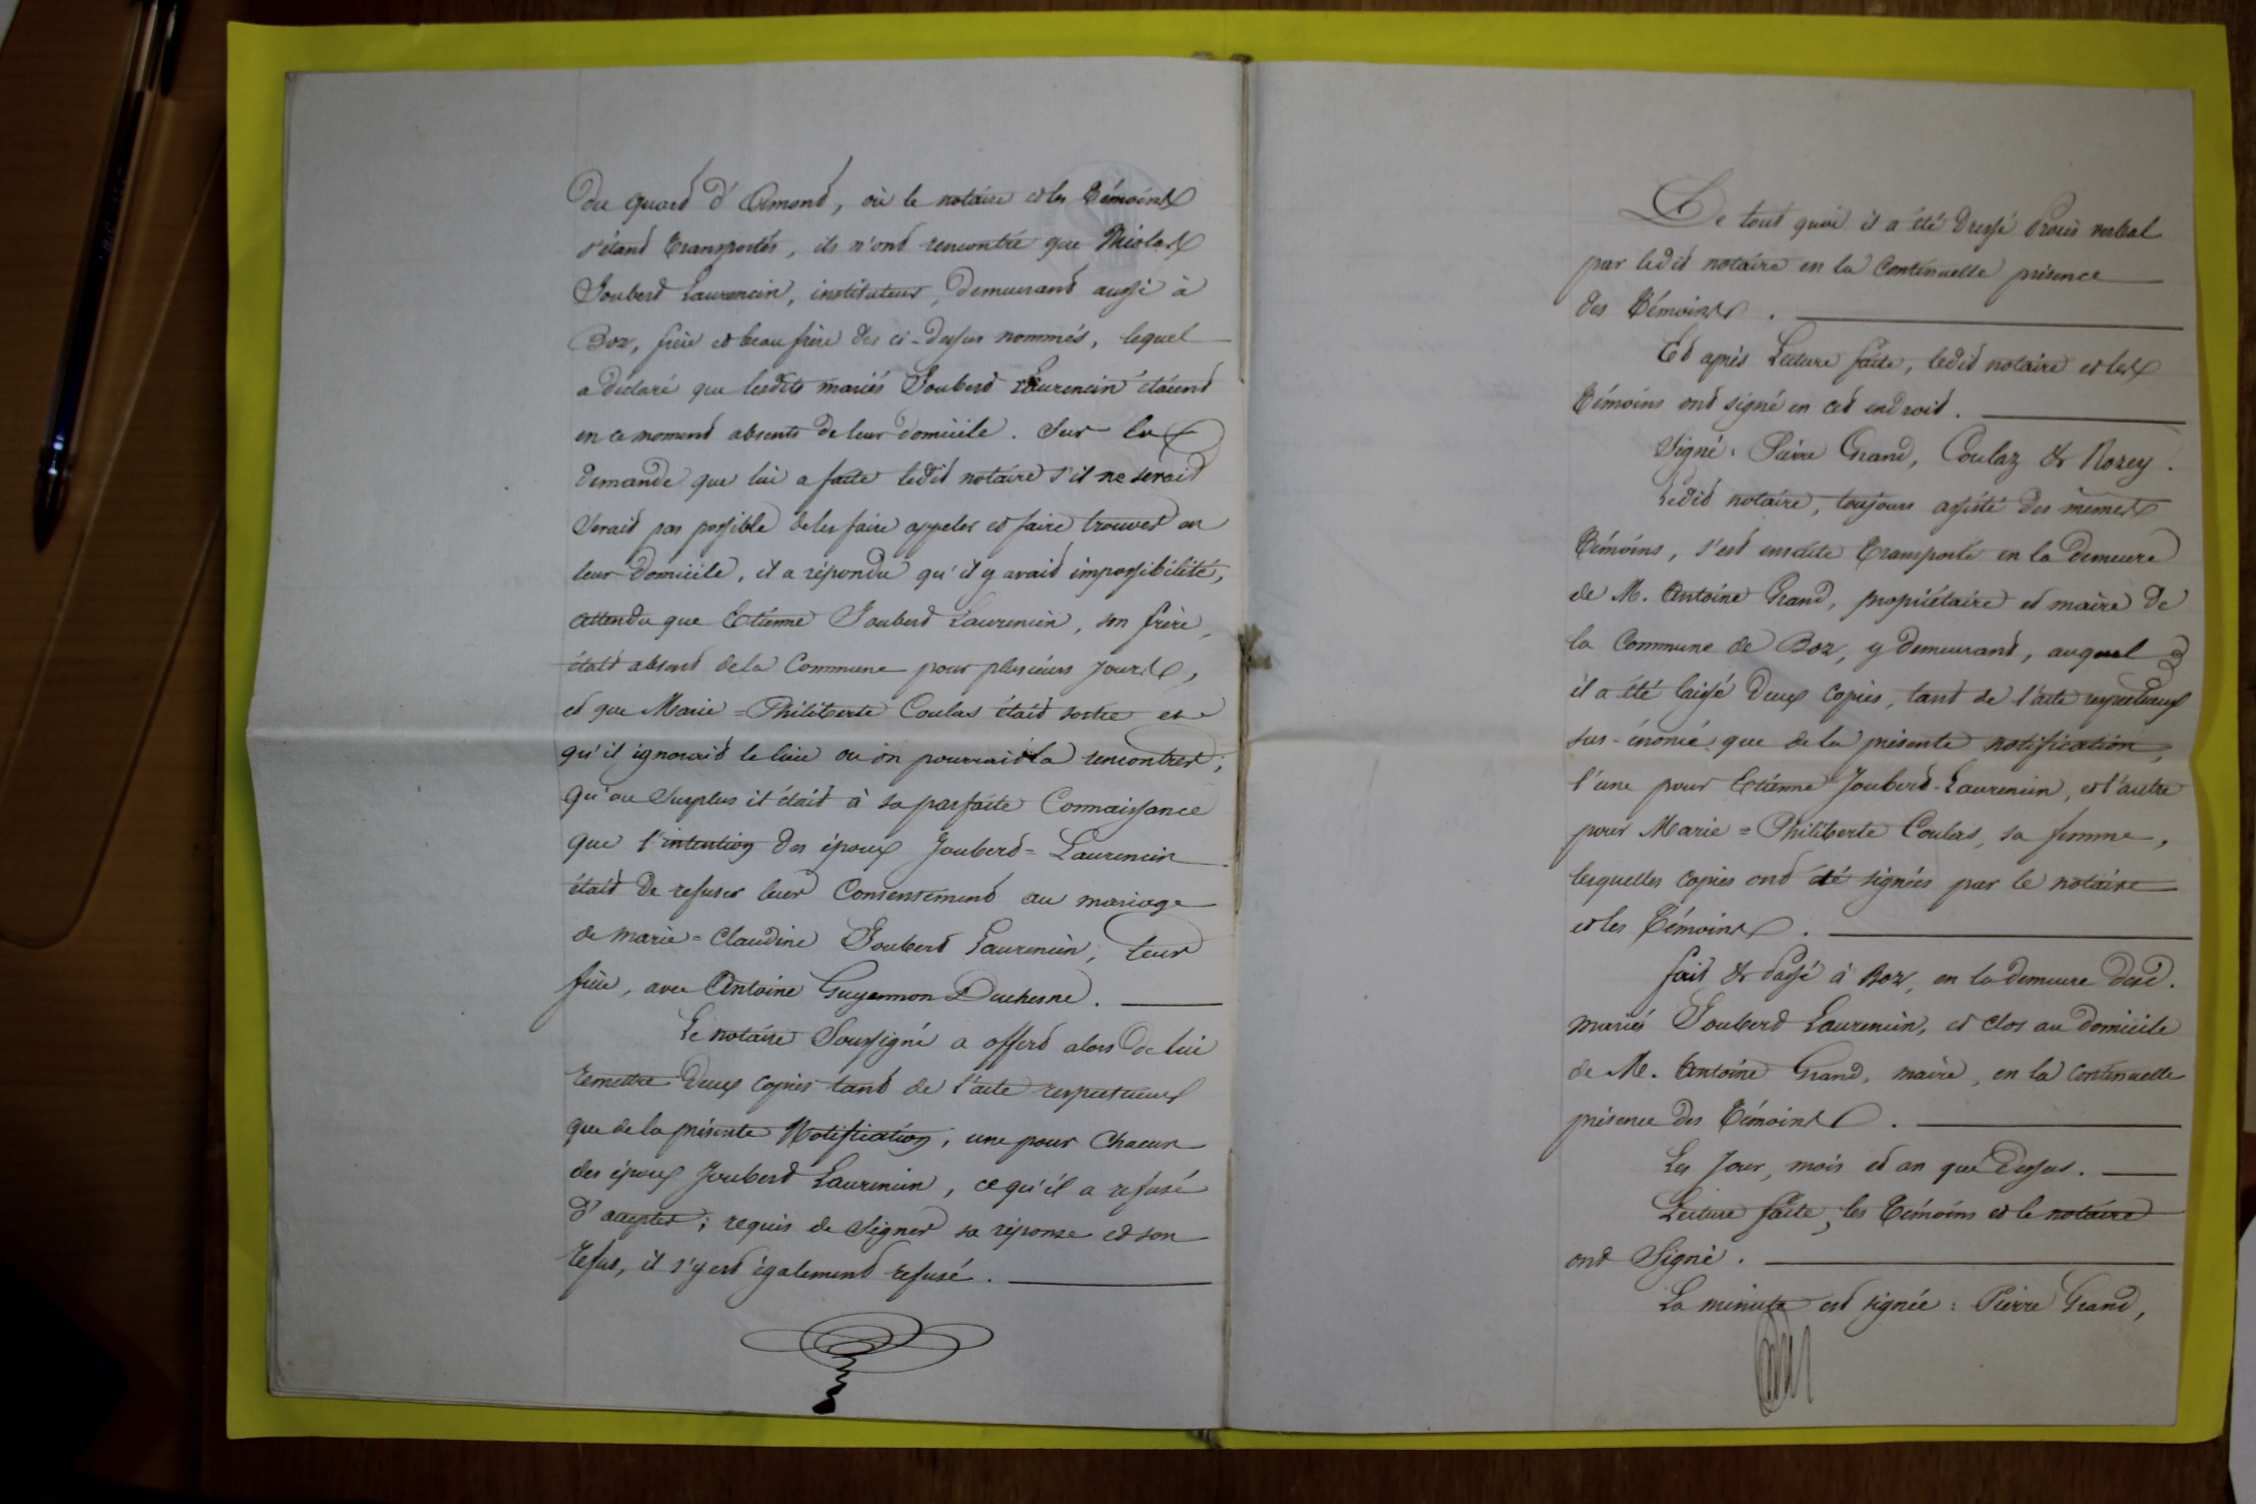 du quard d'Amond, où le notaire et les témoins
s'étant transportés, ils n'ont rencontré que Nicolas
Joubert Laurencin, instituteur, demeurant aussi à
Boz, frère et beau frère des ci-dessus nommés, lequel
a déclaré que lesdits mariés Joubert Laurencin étaient
en ce moment absents de leur domicile. Sur la
demande que lui a faite ledit notaire s'il ne serait
serait pas possible de les faire appeler et faire trouver en
leur domicile, il a répondu qu'il y avait impossibilité,
attendu que Etienne Joubert Laurencin, son frère,
était absent de la Commune pour plusieurs jours,
et que Marie=Philiberte Coulas était sortie et
qu'il ignorait le lieu où on pourrait la rencontrer;
qu'au surplus il était à sa parfaite Connaissance
que l'intention des époux Joubert=Laurencin
était de refuser leur Consentement au mariage
de marie=Claudine Joubert Laurencin, leur
fille, avec Antoine Guyennon Duchesne.
Le notaire Soussigné a offert alors de lui
remettre deux copies tant de l'acte respectueux
que de la présente Notification, une pour Chacun
des époux Joubert Laurencin, ce qu'il a refusé
d'accepter; requis de signer sa réponse et son
refus, il s'y est également refusé.
De tout quoi il a été dressé Procès verbal
par ledit notaire en la Continuelle présence
des témoins.
Et après Lecture faite, ledit notaire et les
témoins ont signé en cet endroit.
Signé: Pierre Grand, Coulaz & Rozey.
Ledit notaire, toujours assisté des mêmes
témoins, s'est ensuite transporté en la demeure
de M. Antoine Grand, propriétaire et maire de
la Commune de Boz, y demeurant, auquel
il a été laissé deux Copies, tant de l'acte respectueux
sus-énoncé que de la présente notification,
l'une pour Etienne Joubert-Laurencin, et l'autre
pour Marie=Philiberte Coulas, sa femme,
lesquelles copies ont été signées par le notaire
et les témoins.
fait & Passé à Boz, en la demeure desd.
mariés Joubert Laurencin, et clos au domicile
de M. Antoine Grand, maire, en la Continuelle
présence des témoins.
Les Jour, mois et an que dessus.
Lecture faite, les témoins et le notaire
ont Signé.
La minute est signée: Pierre Grand,